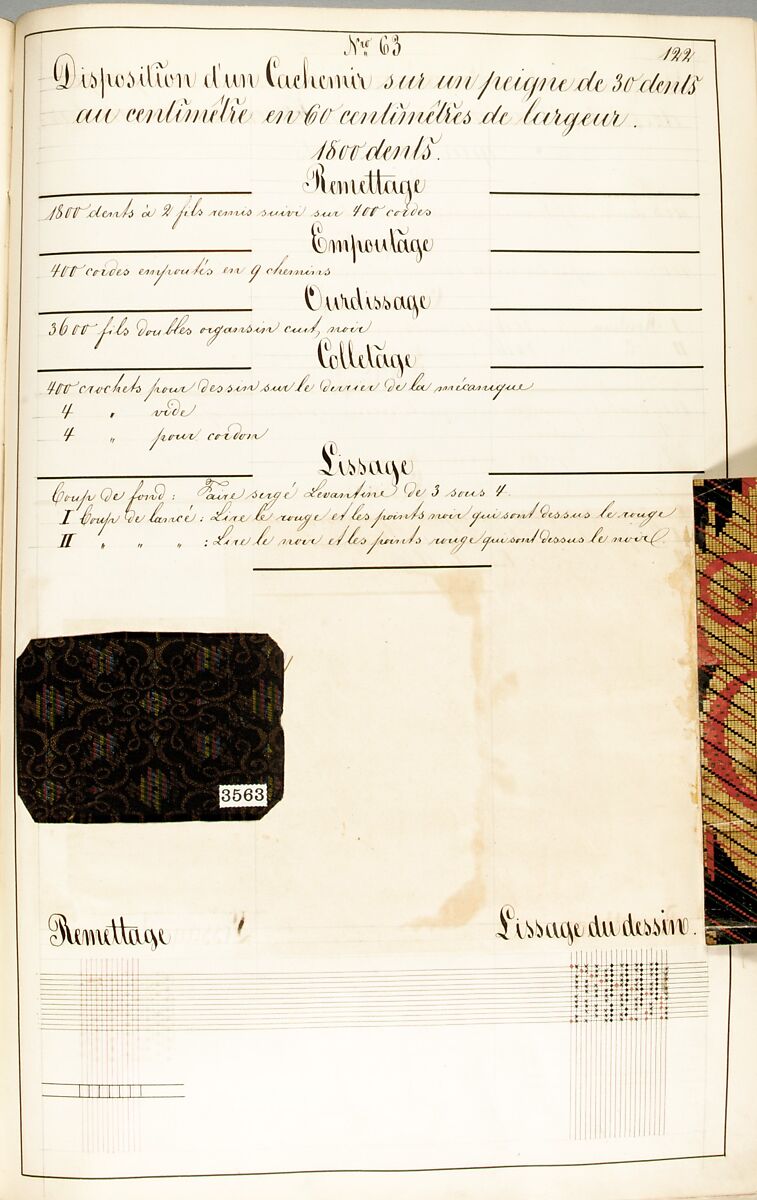 Nro 63
122
Disposition d'un Cachemir sur un peigne de 30 dents
au centimètre en 60 centimètres de largeur.
1800 dents.
Remettage
1800 dents à 2 fils remis suivi sur 400 cordes
Empoutage
400 cordes empoutés en 9 chemins
Ourdissage
3600 fils doubles organsin cuit, noir
Colletage
400 crochets pour dessin sur le derrier de la mécanique
4 " vide
4 " pour cordon
Lissage
Coup de fond : Faire sergé Levantine de 3 sous 4.
I Coup de lancé : Lire le rouge et les points noir qui sont dessus le rouge
II " " " : Lire le noir et les points rouge qui sont dessus le noir.
3563
Remettage
Lissage du dessin.